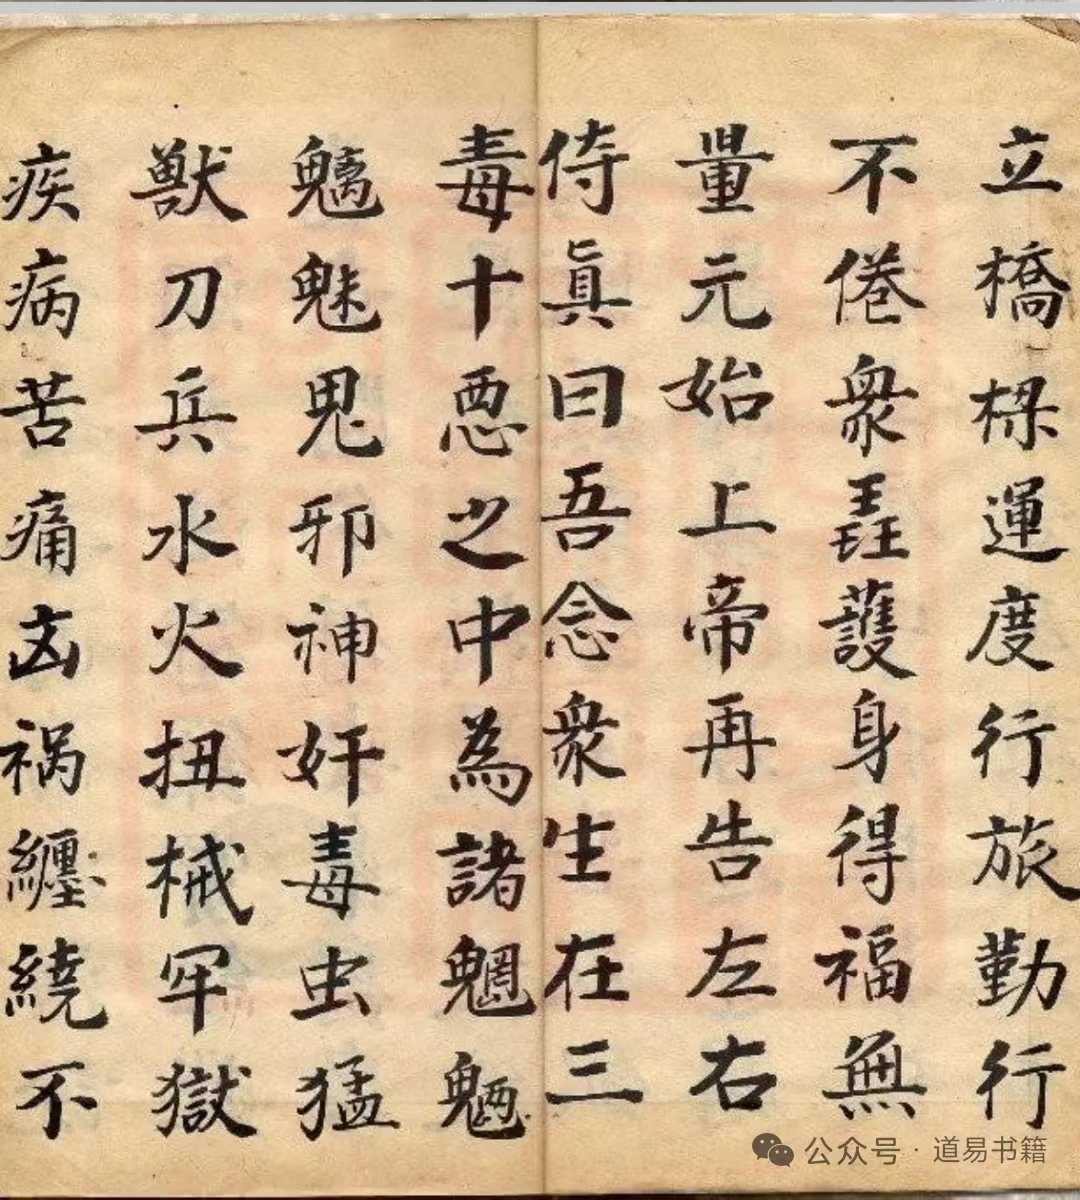 立橋樑運度行旅勤行
不倦衆聖護身得福無
量元始上帝再告左右
侍眞曰吾念衆生在三
毒十惡之中為諸魍魎
魑魅鬼邪神奸毒虫猛
獸刀兵水火扭械牢獄
疾病苦痛凶祸纏繞不
公众号·道易书籍